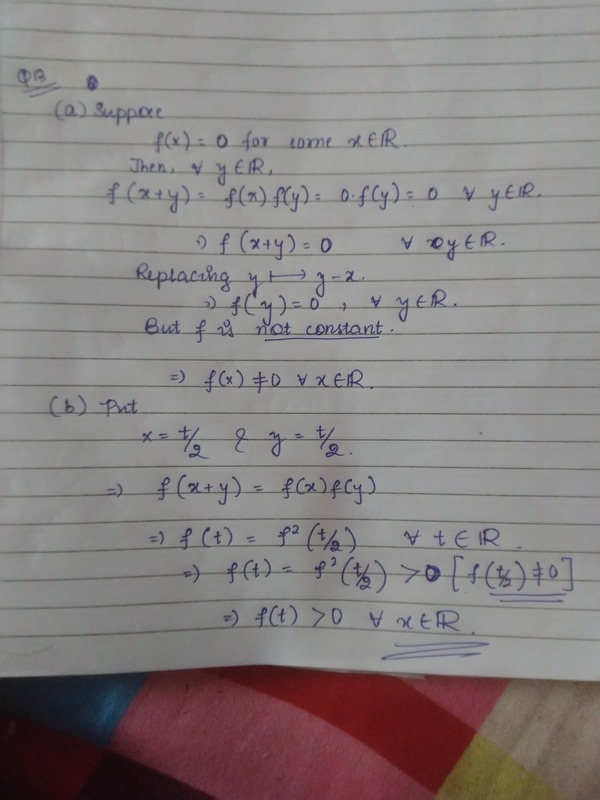 QB
(a) Suppose
f(x) = 0 for some x∈ℝ.
Then, ∀ y∈ℝ,
f(x+y) = f(x)f(y) = 0·f(y) = 0 ∀ y∈ℝ.
⇒ f(x+y) = 0 ∀ y∈ℝ.
Replacing y ⟼ y-x.
⇒ f(y) = 0, ∀ y∈ℝ.
But f is not constant.
⇒ f(x) ≠ 0 ∀ x∈ℝ.
(b) Put
x = t/2 & y = t/2.
⇒ f(x+y) = f(x)f(y)
⇒ f(t) = f²(t/2) ∀ t∈ℝ.
⇒ f(t) = f²(t/2) > 0 [f(t/2) ≠ 0]
⇒ f(t) > 0 ∀ x∈ℝ.